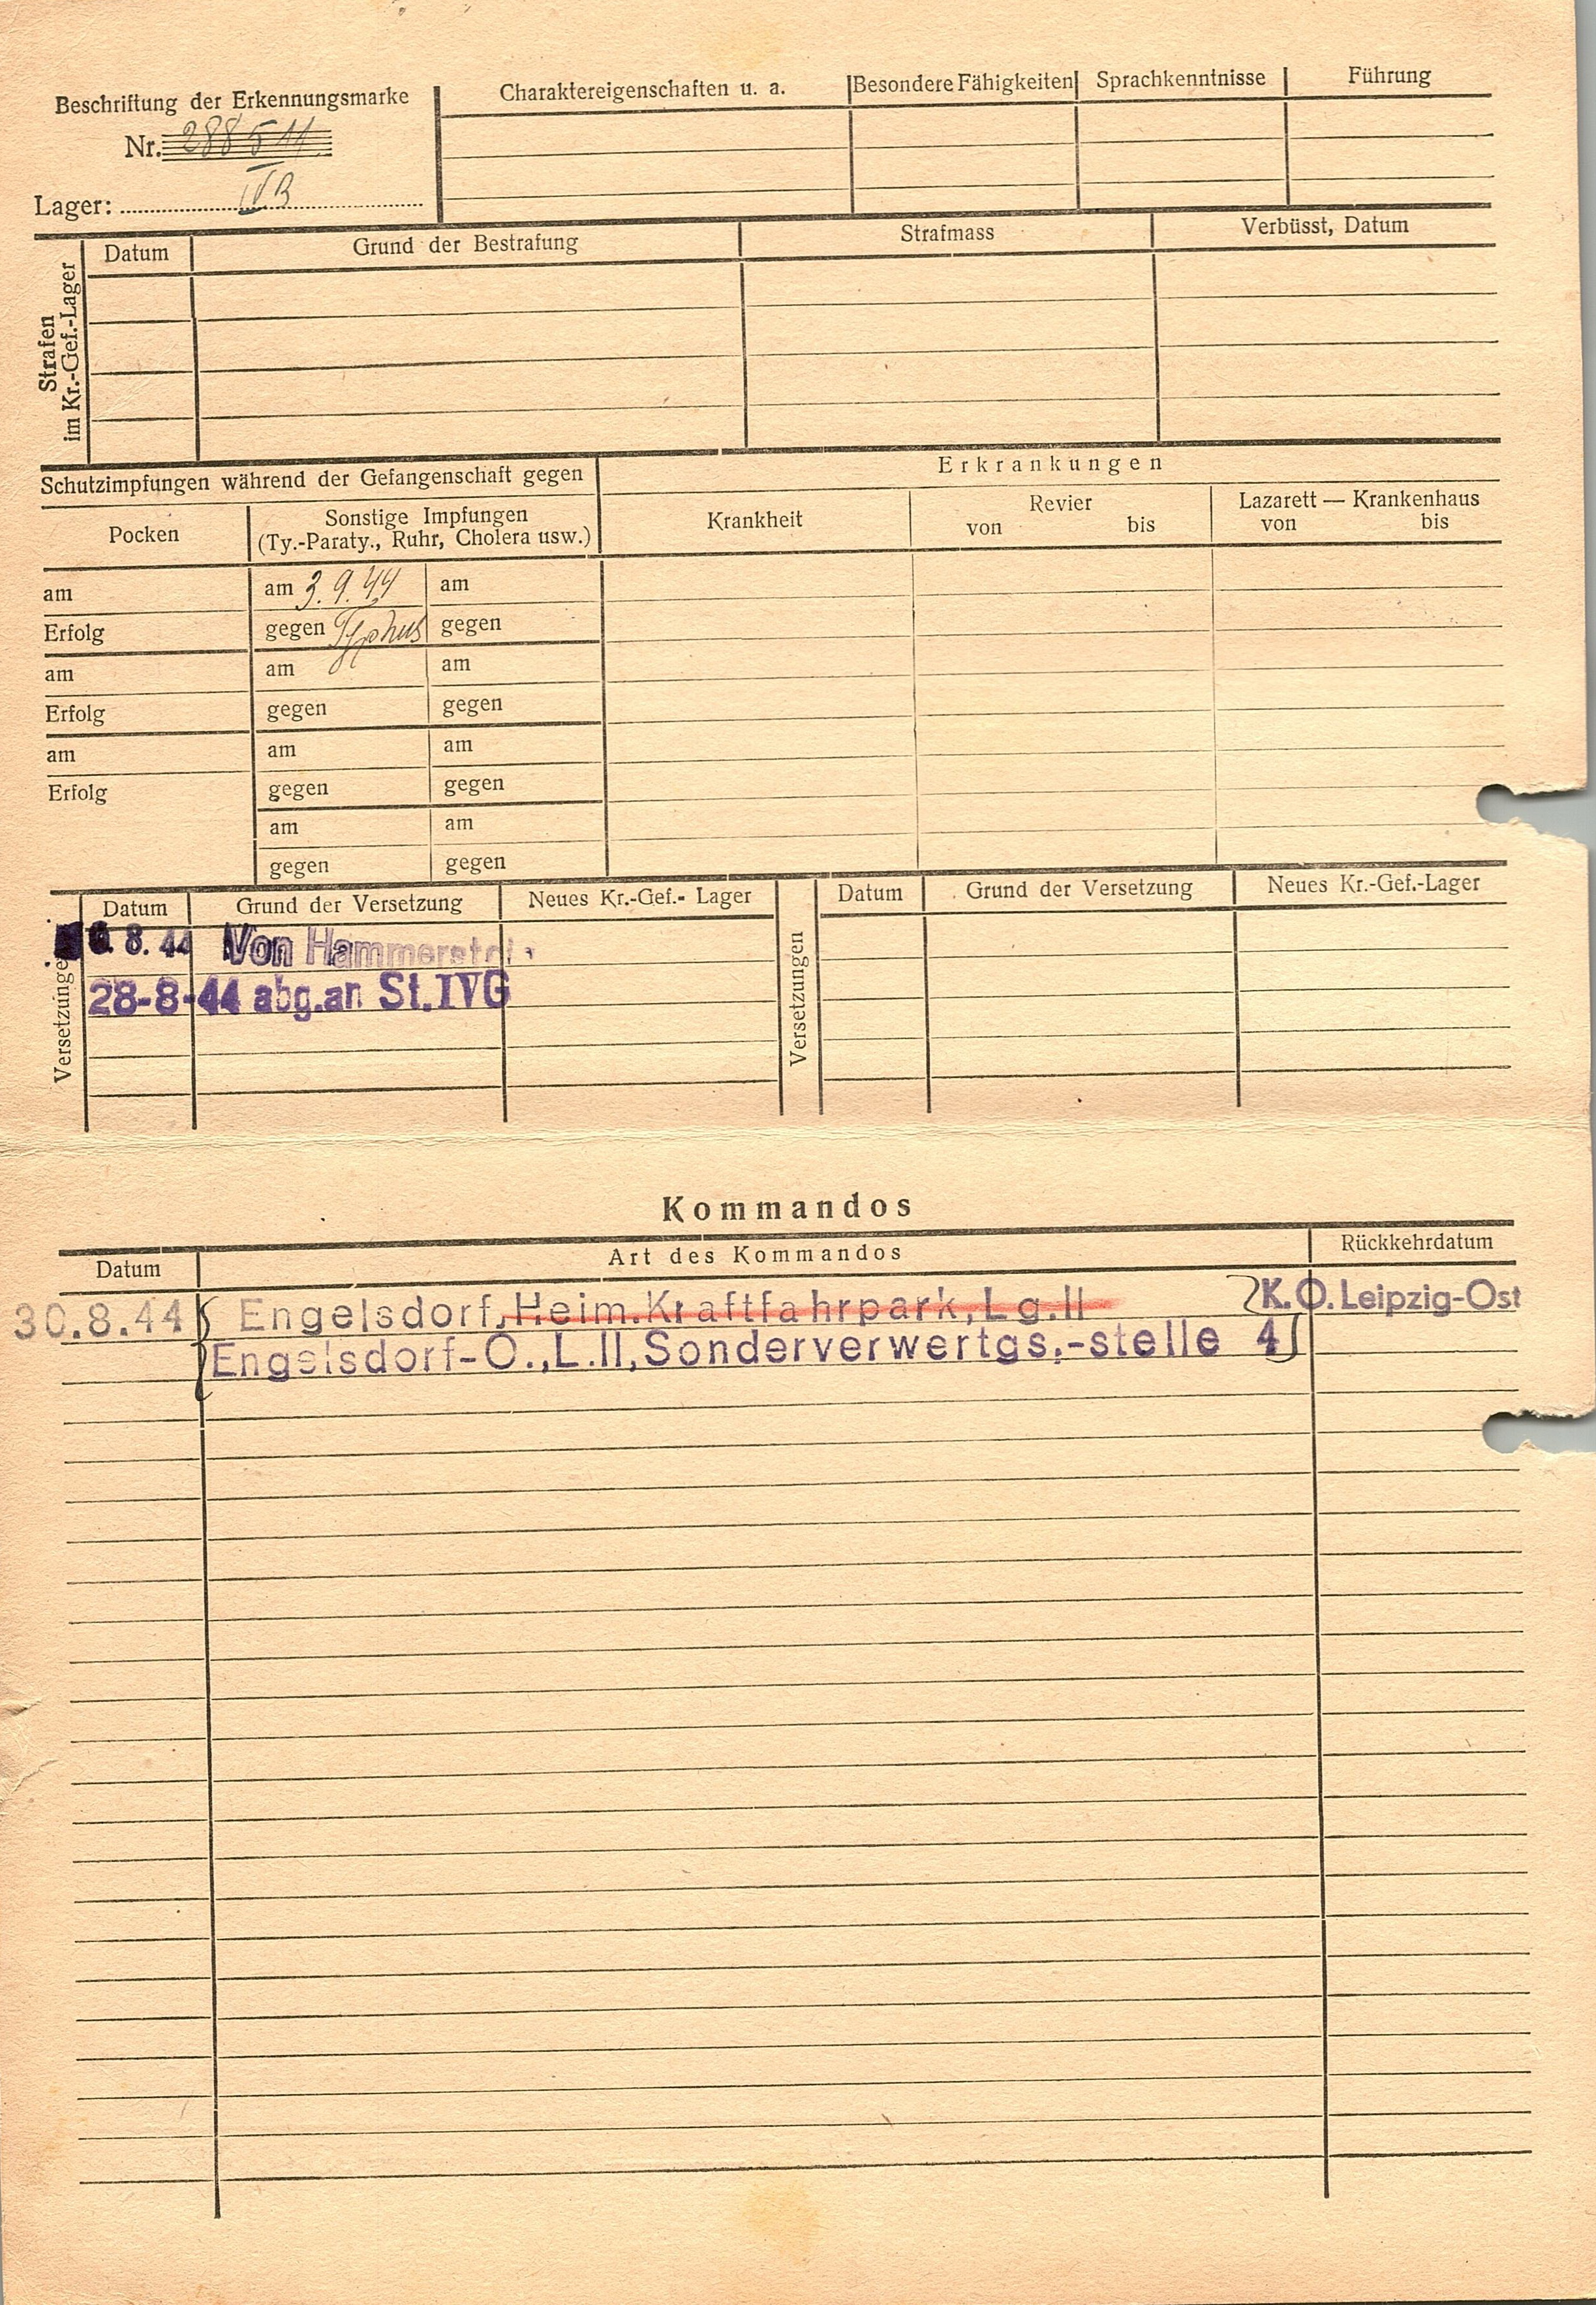 Beschriftung der Erkennungsmarke
Nr. 288544
Lager: IVB
Charaktereigenschaften u. a.
Besondere Fähigkeiten
Sprachkenntnisse
Führung
Strafen
im Kr.-Gef.-Lager
Datum
Grund der Bestrafung
Strafmass
Verbüsst, Datum
Schutzimpfungen während der Gefangenschaft gegen
Erkrankungen
Pocken
Sonstige Impfungen
(Ty.-Paraty., Ruhr, Cholera usw.)
Krankheit
Revier
von bis
Lazarett — Krankenhaus
von bis
am am 3.9.44 am
Erfolg gegen Typhus gegen
am am am
Erfolg gegen gegen
am am am
Erfolg gegen gegen
am am
gegen gegen
Versetzungen
Datum Grund der Versetzung Neues Kr.-Gef.- Lager
8. 44 Von
28-8-44 abg.an St.IVG
Versetzungen
Datum Grund der Versetzung Neues Kr.-Gef.-Lager
Kommandos
Datum Art des Kommandos Rückkehrdatum
30.8.44 Engelsdorf,Heim.Kraftfahrpark,Lg.II K.O.Leipzig-Ost
Engelsdorf-O.,L.II,Sonderverwertgs.-stelle 4